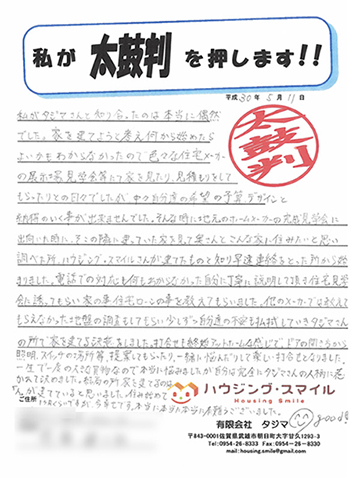 私が 太鼓判 を押します!!
平成30年5月11日
太鼓判
私がタジマさんと知り合ったのは本当に偶然
でした。家を建てようと考え何から始めたら
よいかもわからなかったので色々な住宅メーカー
の展示場見学会等で家を見たり、見積もりをして
もらったりとの日々でしたが中々自分達の希望の予算デザインと
納得のいく事が出来ませんでした。そんな時に地元のホームメーカーの完成見学会に
出向いた時に、そこの隣に建っていた家を見て奥さんとこんな家に住みたいと思い
調べた所、ハウジング・スマイルさんが建てたものと知り早速連絡をとった所から始
まりました。電話での対応も何もわからなかった自分に丁寧に説明して頂き住宅見学
会に誘ってもらい家の事住宅ローンの事を教えてもらいました。他のメーカーでは教えて
もらえなかった地盤の調査もしてもらい少しずつ自分達の不安も払拭していきタジマさん
の所で家を建てる決意をしました。打合せも終始アットホームな感じで、ドアの開きから
照明、スイッチの場所等、提案してもらったり、一緒に悩んだりして楽しい打合せとなりました。
一生で一度の大きな買物なので本当に悩みましたが自分は完全にタジマさんの人柄に惹
かれて決めました。結局の所、家を建てるのは
人が建てていると思いました。住み始めて
ですが、幸せです。本当に本当に本当に有難うございました。
ご住所
good!
ハウジング・スマイル
Housing Smile
有限会社 タジマ
〒843-0001佐賀県武雄市朝日町大字甘久1293-3
Tel:0954-26-8333 Fax:0954-26-8330
mail:housing.smile@gmail.com